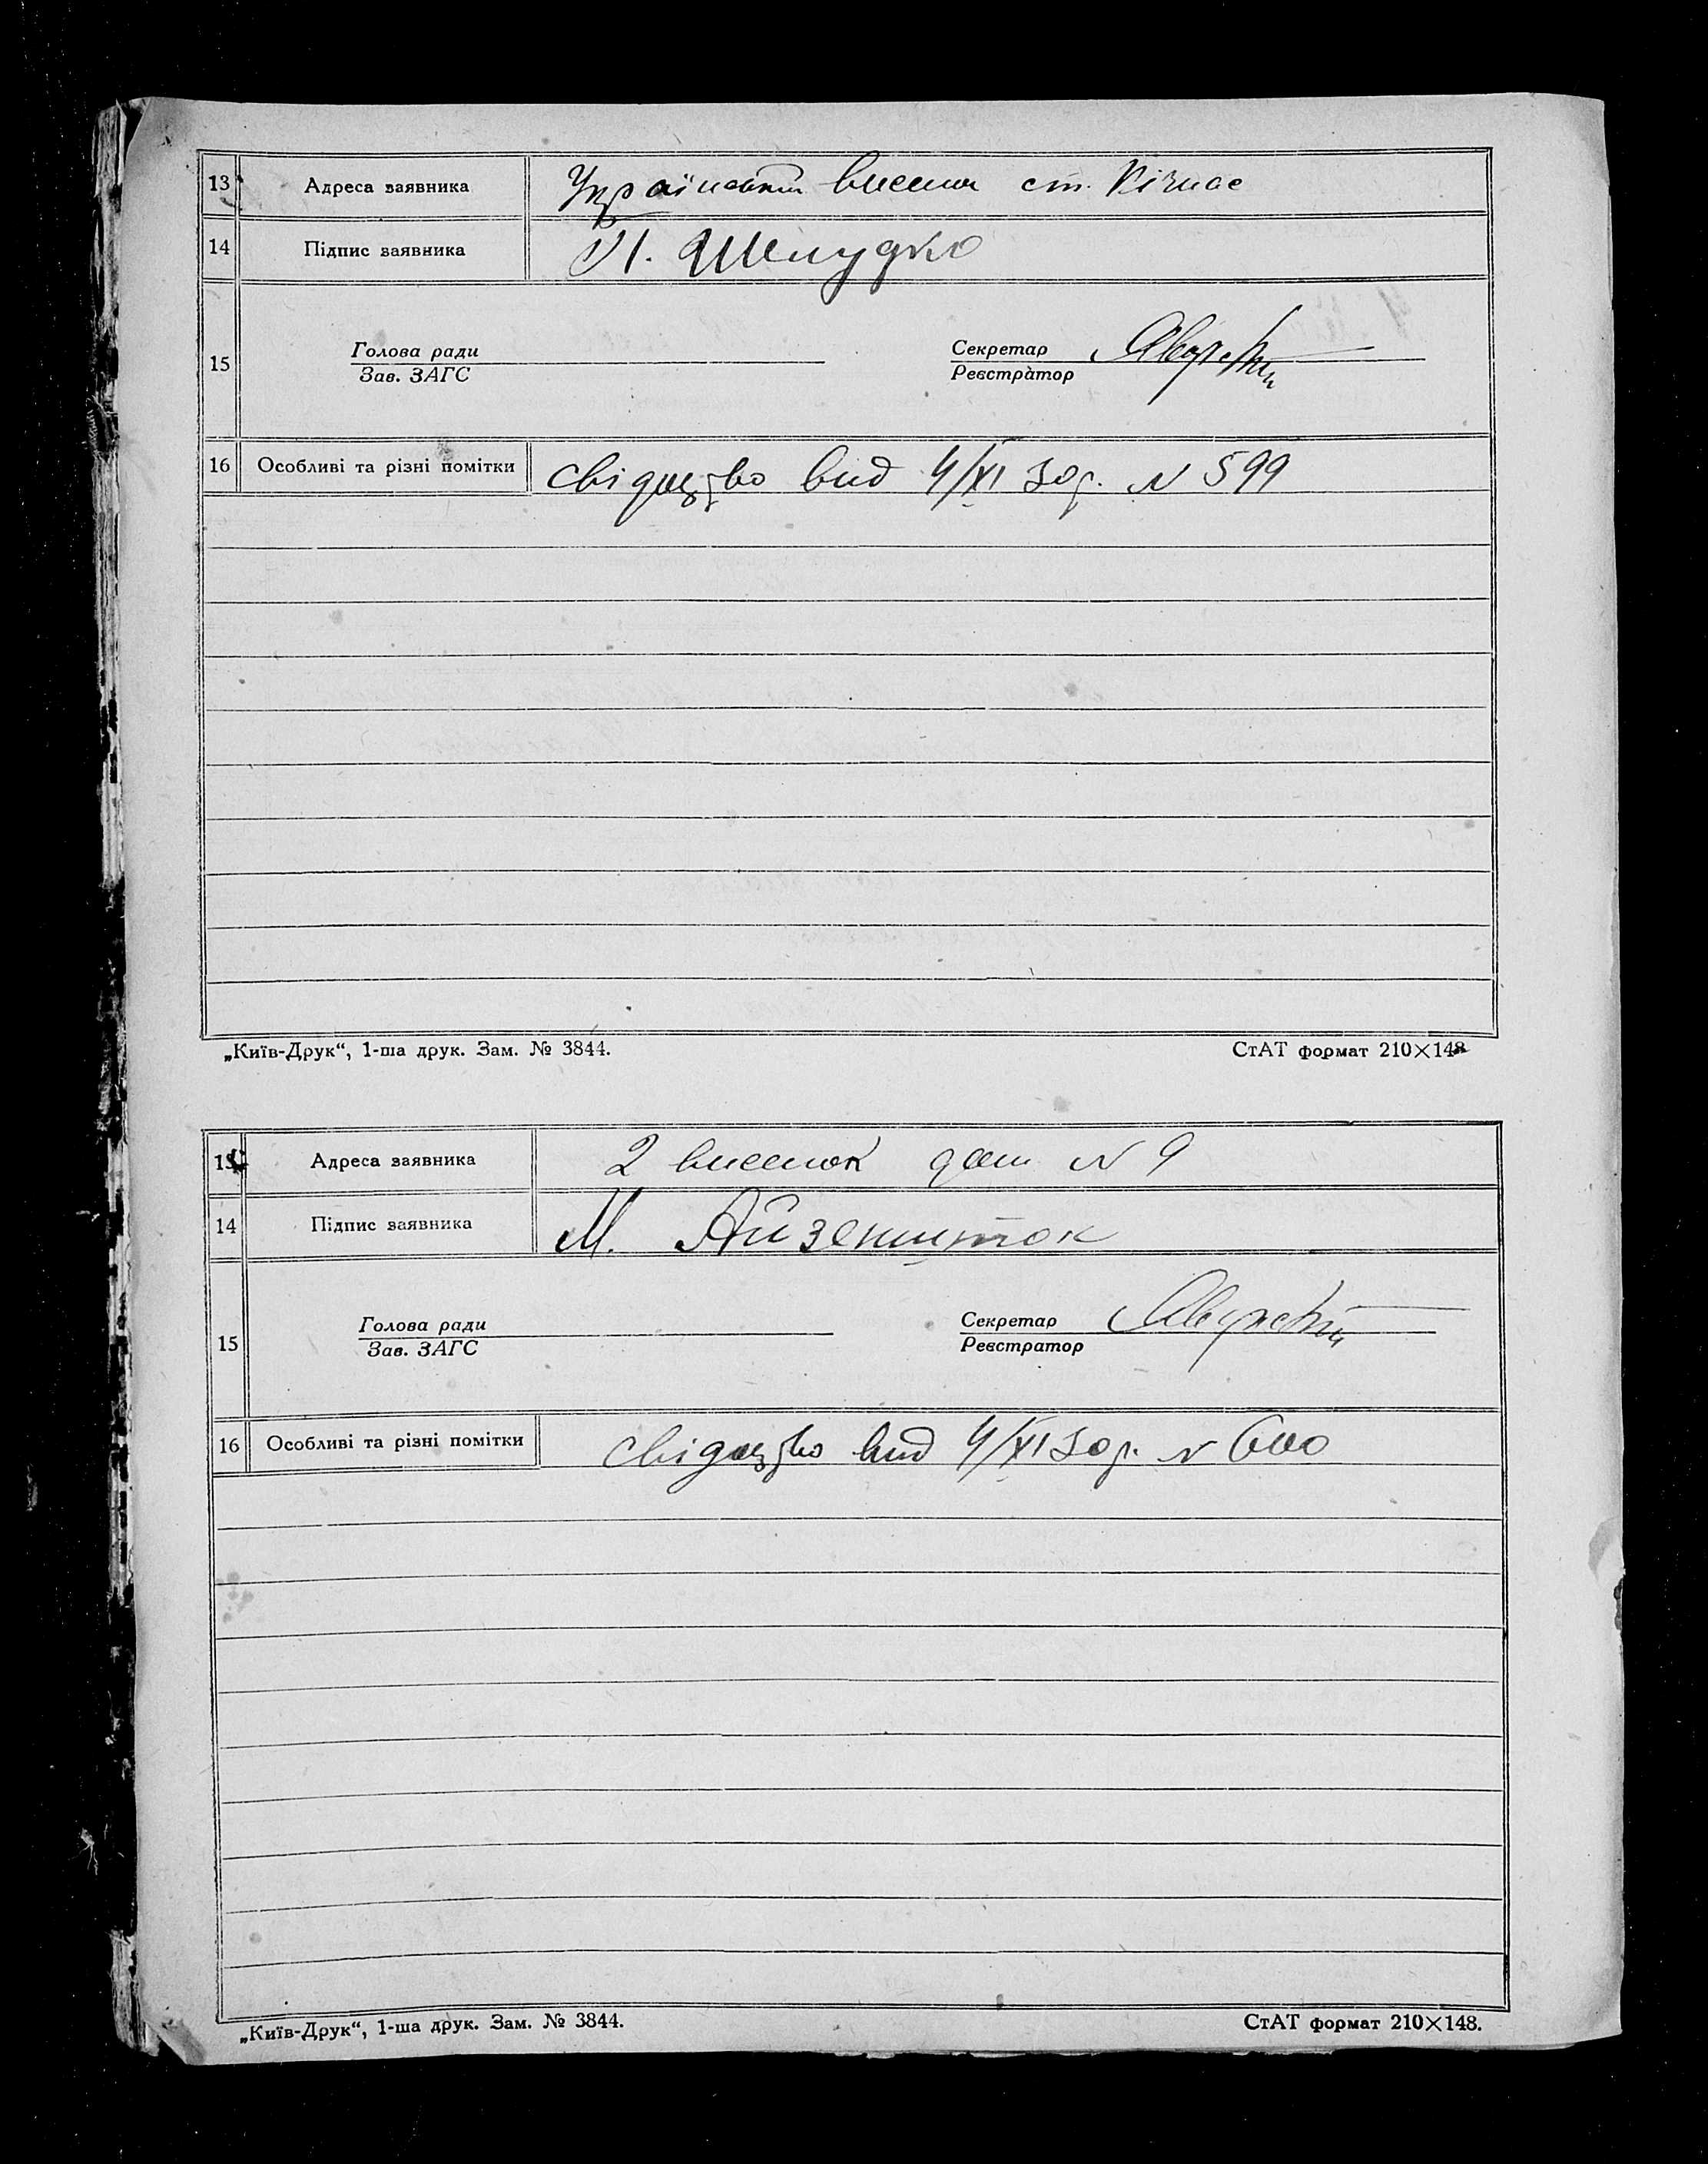 13 Адреса заявника Український висел. ст. Кічкас
14 Підпис заявника П. Шелудко
Голова ради Секретар
15
Зав. ЗАГС Реєстратор
16 Особливі та різні помітки свідоцтво вид 4/XI 30 р. N 599
„Київ-Друк“, 1-ша друк. Зам. № 3844. СтАТ формат 210×148
13 Адреса заявника 2 виселок дом N 9
14 Підпис заявника М. Айзеншток
Голова ради Секретар
15
Зав. ЗАГС Реєстратор
16 Особливі та різні помітки свідоцтво вид 4/XI 30 р. N 600
„Київ-Друк“, 1-ша друк. Зам. № 3844. СтАТ формат 210×148.